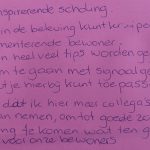 nspirerende scholing.
in de beleving kunt kruipen
menterende bewoner.
n heel veel tips worden ge
m te gaan met signaalge
t je hierbij kunt toepass
dat ik hier mee collega's
an nemen, om tot goede zo
ng te komen voor ten g
voor onze bewoners